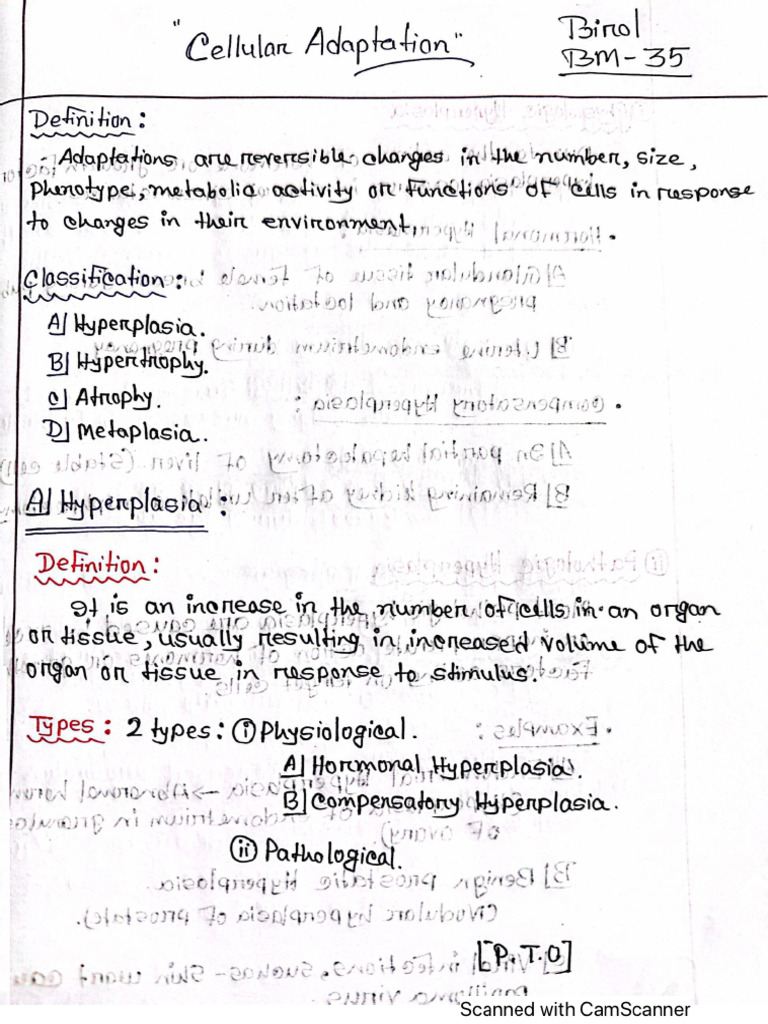 "Cellular Adaptation"
Birol
BM-35
Definition:
Adaptations are reversible changes in the number, size,
phenotype, metabolic activity or functions of cells in response
to changes in their environment.
Classification:
A] Hyperplasia.
B] Hypertrophy.
C] Atrophy.
D] Metaplasia.
A] Hyperplasia:
Definition:
It is an increase in the number of cells in an organ
or tissue, usually resulting in increased volume of the
organ or tissue in response to stimulus.
Types: 2 types: (i) Physiological.
A] Hormonal Hyperplasia.
B] Compensatory Hyperplasia.
(ii) Pathological.
[P.T.O]
Scanned with CamScanner